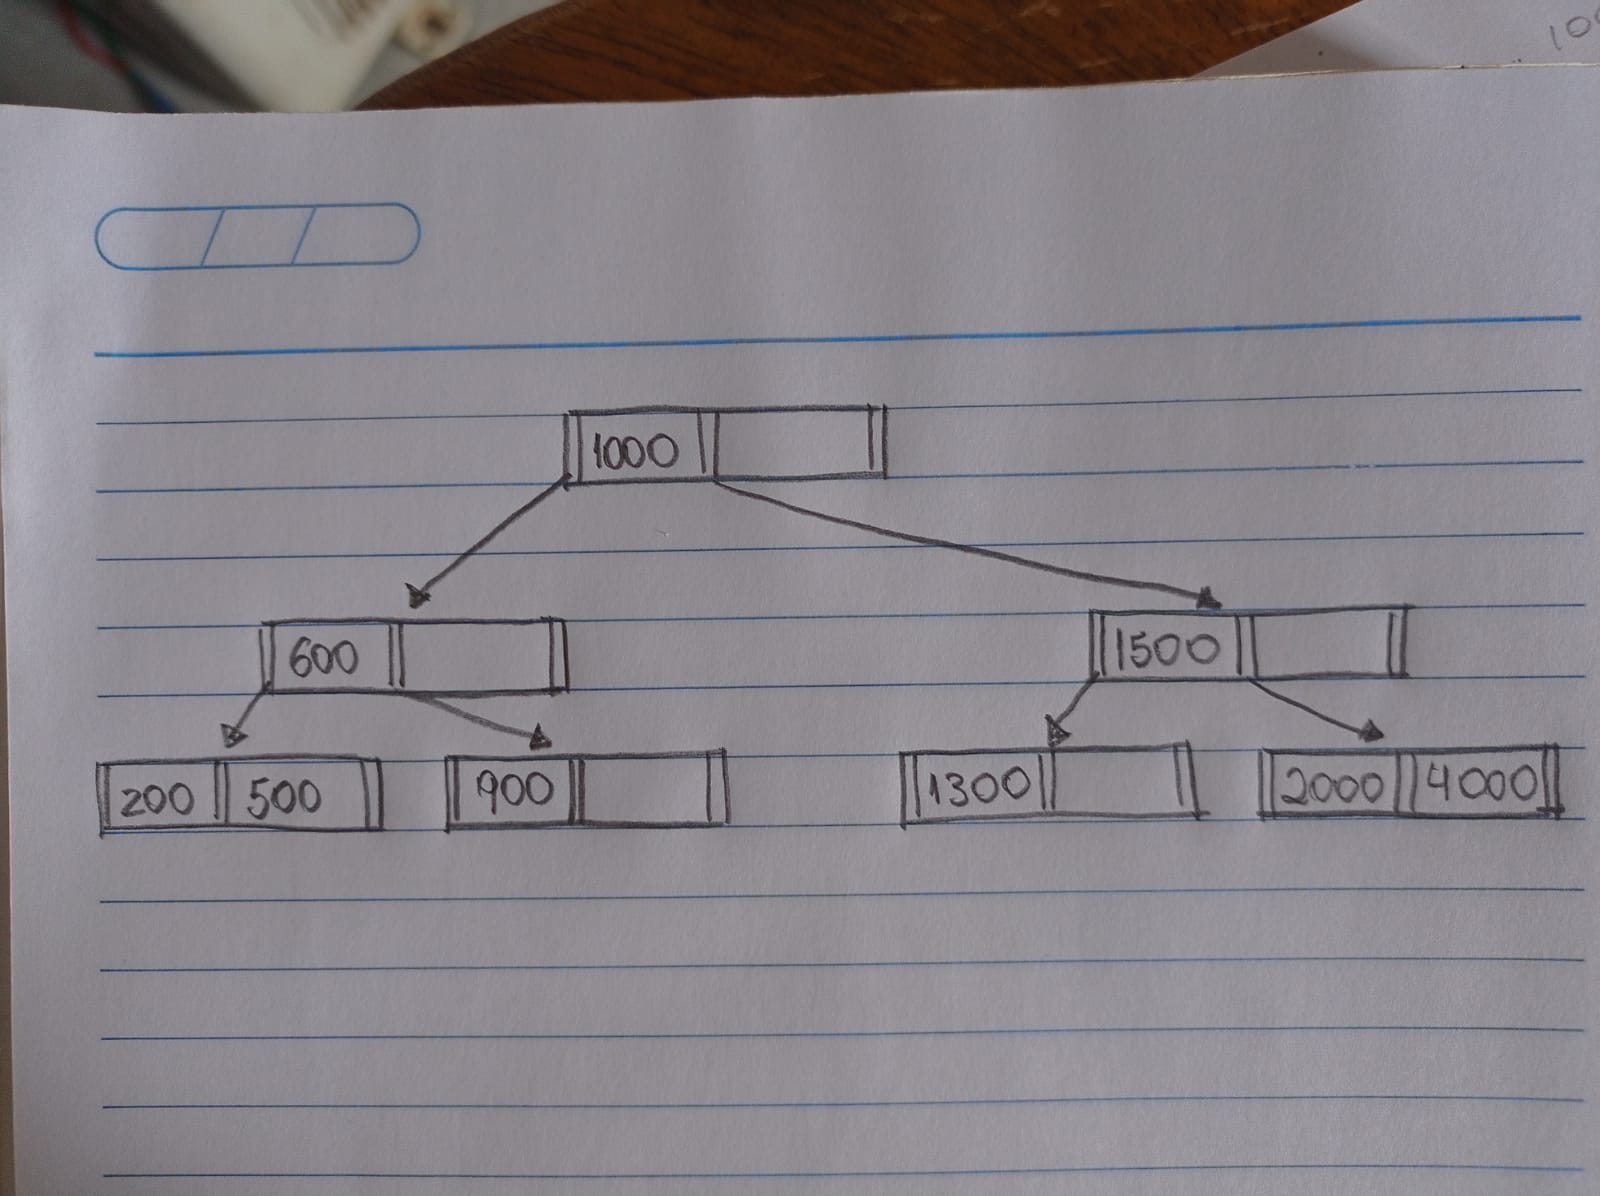 1000
600 1500
200 500 900 1300 2000 4000